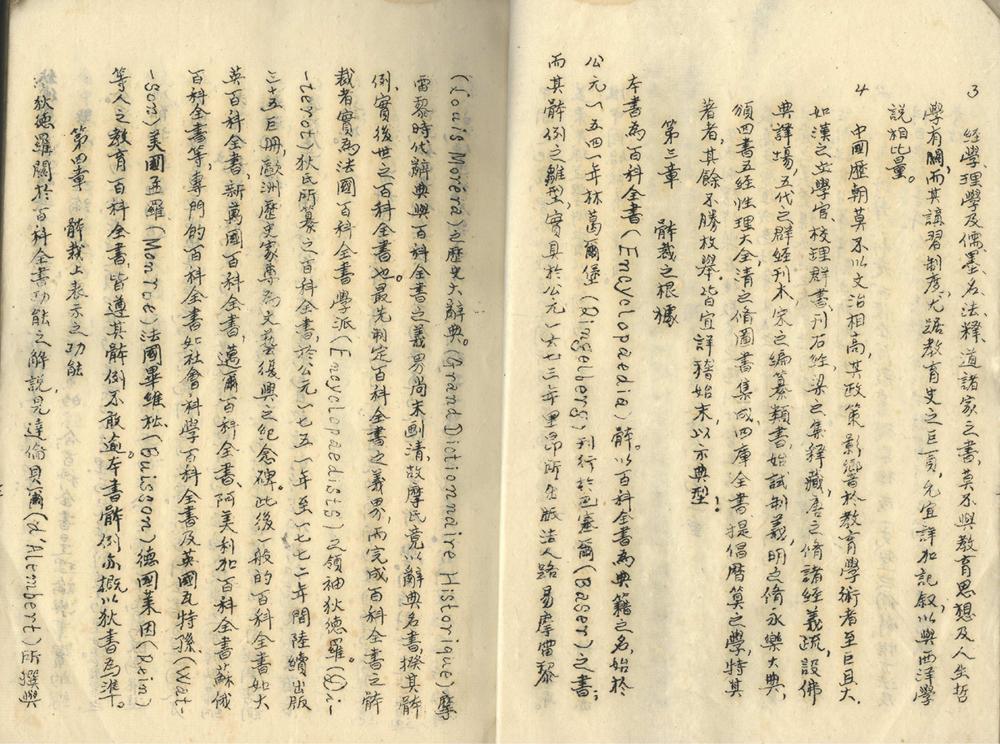 3 經學理學及儒墨名法釋道諸家之書，莫不與教育思想及人生哲
學有關，而其講習制度尤踞教育史之巨頁，允宜詳加記敘，以與西洋學
說相比量。
4 中國歷朝莫不以文治相高，其政策影響於教育學術者至巨且大．
如漢之立學官，校理群書，刊石經，梁之集釋藏，唐之脩諸經義疏，設佛
典譯場，五代之群經刊本，宋之編纂類書，始試制義，明之脩永樂大典，
頒四書五經性理大全，清之脩圖書集成，四庫全書，提倡曆算之學，特其
著者，其餘不勝枚舉．皆宜詳稽始末，以示典型！
第三章 體裁之根據
本書為百科全書(Encyclopaedia)體．以百科全書為典籍之名，始於
公元一五四一年林葛爾堡(Ringelberg)刊行於巴塞爾(Baser)之書；
而其體例之雛型，實具於公元一六七三年里昂所出版法人路易摩雷黎
(Louis Moréra)之歷史大辭典。(Grand Dictionnaire Historique)摩
雷黎時代辭典與百科全書之義界尚未劃清，故摩氏竟以辭典名書，揆其體
例，實後世之百科全書也。最先制定百科全書之義界，而完成百科全書之體
裁者，實為法國百科全書學派(Encyclopaedists)之領袖狄德羅。(Di-
-terot)狄氏所纂之百科全書，於公元一七五一年至一七七二年間陸續出版
三十五巨冊，歐洲歷史家尊為文藝復興之紀念碑。此後一般的百科全書如大
英百科全書，新萬國百科全書，邁爾百科全書，阿美利加百科全書，蘇俄
百科全書等，專門的百科全書如社會科學百科全書及英國瓦特孫(Wat-
-son)美國孟羅(Monroe)法國畢維松(Buisson)德國萊因(Rein)
等人之教育百科全書，皆遵其體例不敢逾。本書體例亦概以狄書為準。
第四章 體裁上表示之功能
狄德羅關於百科全書功能之解說，見達倫貝爾(d'Alembert)所撰與